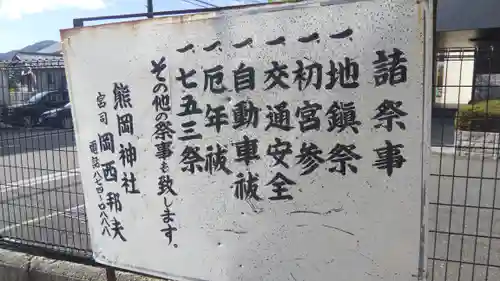 諸祭事
一、地鎮祭
一、初宮参
一、交通安全
一、自動車祓
一、厄年祓
一、七五三祭
その他の祭事も致します。
熊岡神社
宮司 岡西邦夫
電話八七四-〇八八八